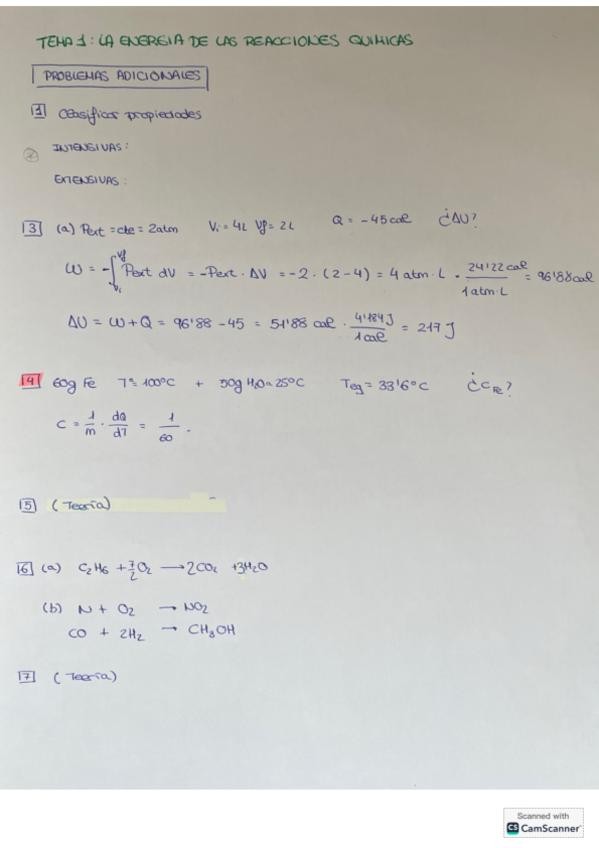 TEMA 1: LA ENERGIA DE LAS REACCIONES QUIMICAS
PROBLEMAS ADICIONALES
1 Clasificar propiedades
INTENSIVAS:
EXTENSIVAS:
3 (a) Pext = cte = 2atm Vi = 4L Vf = 2L Q = -45cal ¿ΔU?
W = -∫Vi Vf Pext dV = -Pext · ΔV = -2 · (2-4) = 4 atm·L · 24'22 cal / 1 atm·L = 96'88 cal
ΔU = W + Q = 96'88 - 45 = 51'88 cal · 4'184 J / 1 cal = 217 J
4 60g Fe Tª = 100°C + 50g H2O a 25°C Teq = 33'6°C ¿CFe?
C = 1/m · dQ/dT = 1/60 ·
5 (Teoría)
6 (a) C2H6 + 7/2 O2 → 2CO2 + 3H2O
(b) N + O2 → NO2
CO + 2H2 → CH3OH
7 (Teoría)
Scanned with
CS CamScanner